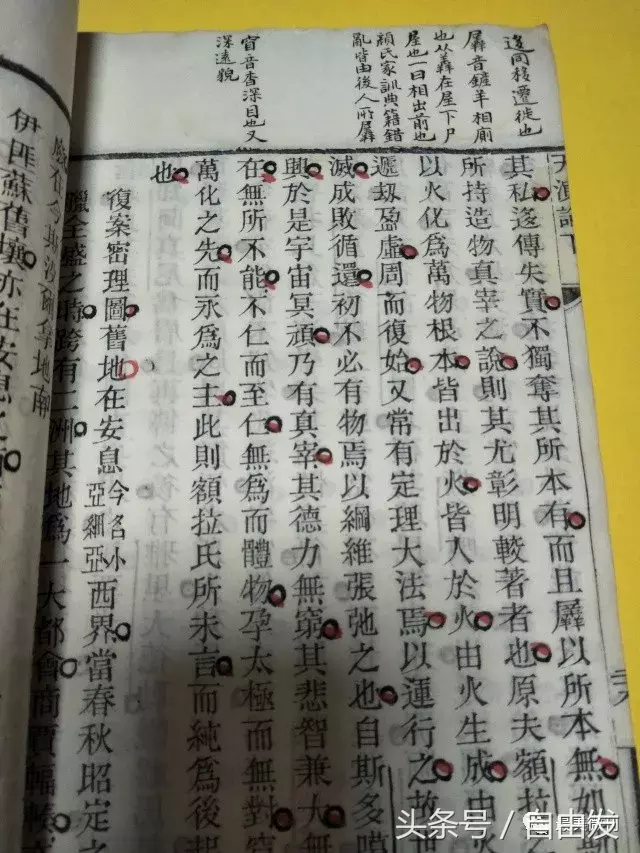 迻同移遷徙也
羼音鏟羊相廁
也从羴在屋下尸
屋也一曰相出前也
顏氏家訓典籍錯
亂皆由後人所羼
窅音杳深目也又
深遠貌
天演論下
其私迻傳失實不獨奪其所本有而且羼以所本無如
所持造物真宰之說則其尤彰明較著者也原夫額拉
以火化為萬物根本皆出於火皆入於火由火生成由
遞刼盈虛周而復始又常有定理大法焉以運行之故世
滅成敗循還初不必有物焉以綱維張弛之也自斯多噶
興於是宇宙冥頑乃有真宰其德力無窮其悲智兼大無
在無所不能不仁而至仁無為而體物孕太極而無對窅
萬化之先而永為之主此則額拉氏所未言而純為後起
也
復案密理圖舊地在安息今名小亞細亞西界當春秋昭定之
獵全盛之時跨有二洲其地為一大都會商賈輻輳
在今斯沒爾拿地南
伊匪蘇舊壤亦在安息之
头条号／自由发